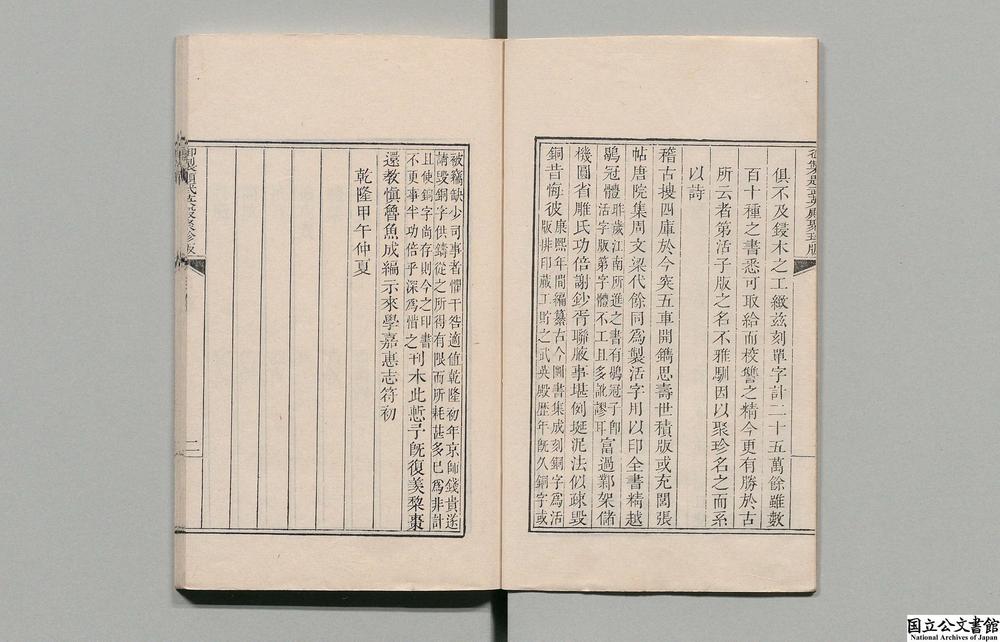 俱不及鋟木之工緻兹刻單字計二十五萬餘雖數
百十種之書悉可取給而校讐之精今更有勝於古
所云者第活字版之名不雅馴因以聚珍名之而系
以詩
稽古搜四庫於今突五車開鐫思壽世積版或充閭張
帖唐院集周文梁代餘同爲製活字用以印全書精越
鶡冠體昨歲江南所進之書有鶡冠子即活字版第字體不工且多訛謬耳富過鄴架儲
機圓省雕氏功倍謝鈔胥聯腋事堪例埏泥法似疎毀
銅昔悔彼康熙年間編纂古今圖書集成刻銅字爲活版排印藏工貯之武英殿歷年旣久銅字或
被竊缺少司事者懼干咎適值乾隆初年京師錢貴遂請毀銅字供鑄從之所得有限而所耗甚多已爲非計
且使銅字尚存則今之印書不更事半功倍乎深爲惜之刊木此慙予旣復羨黎棗
還教愼魯魚成編示來學嘉惠志符初
乾隆甲午仲夏
二
国立公文書館
National Archives of Japan